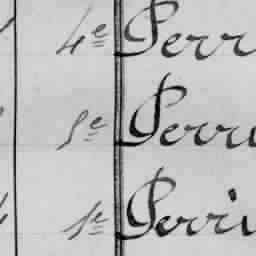 4e Perr
5e Perru
1e Perri